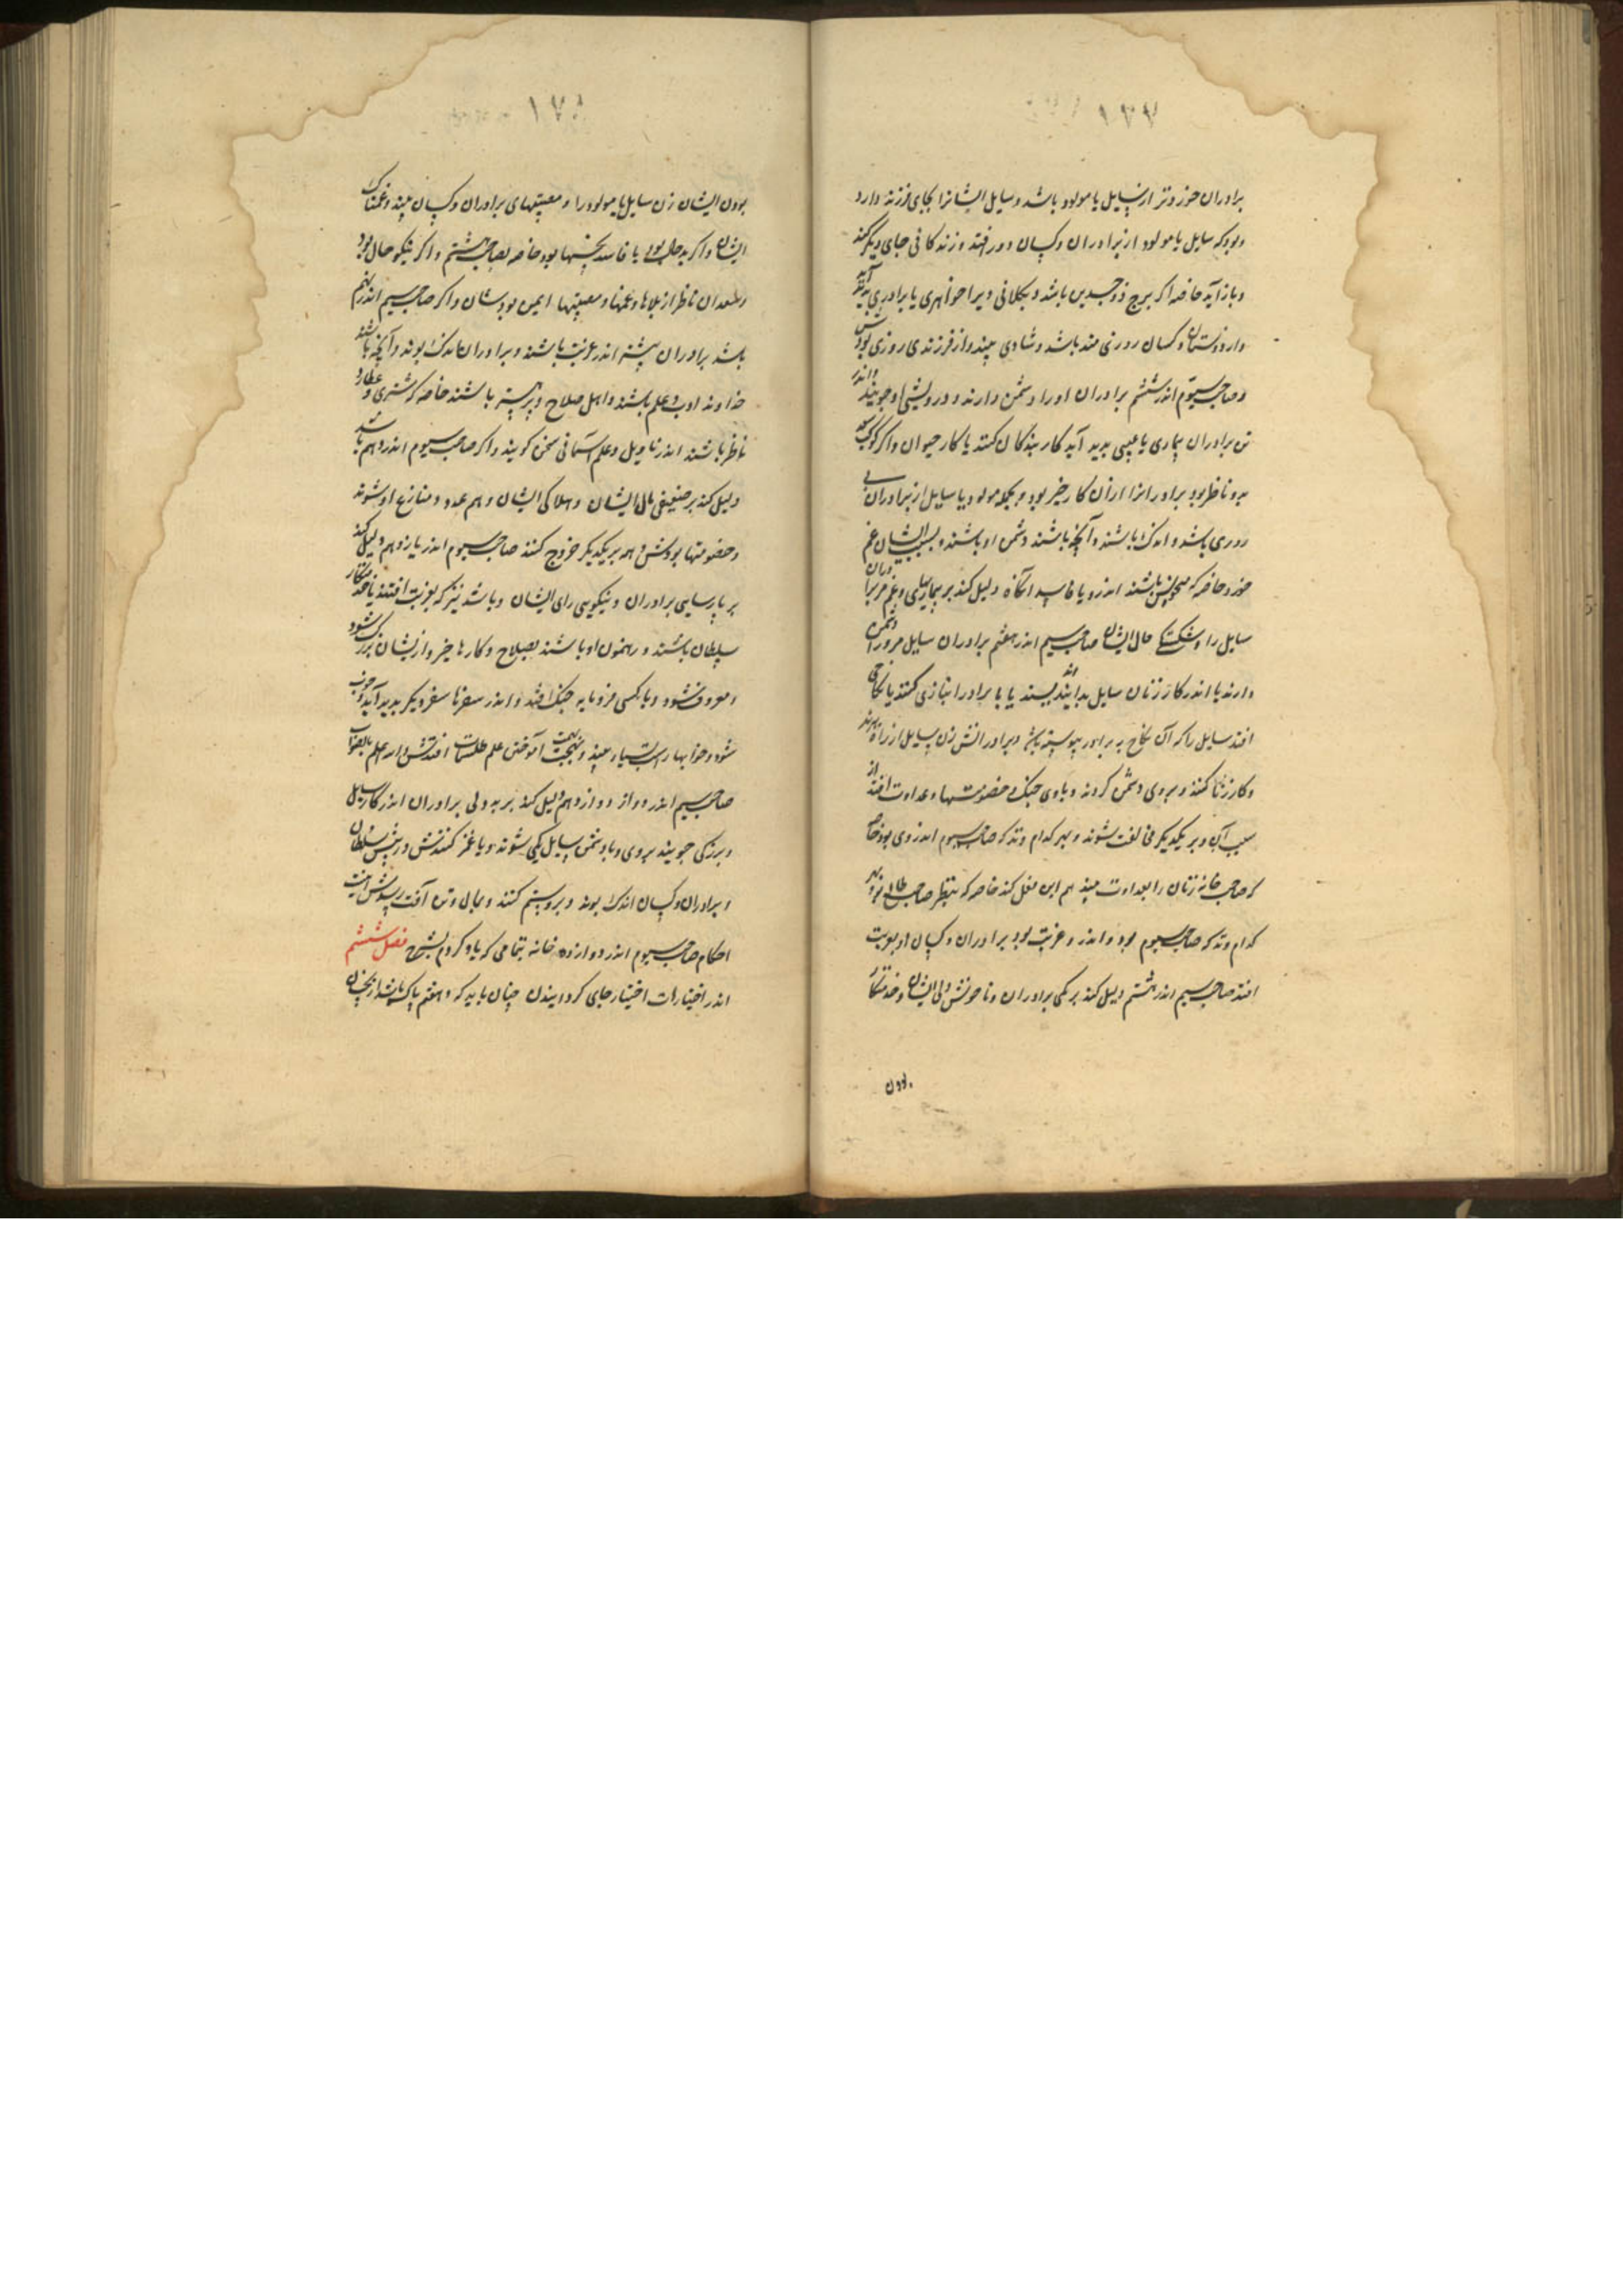 ۱۷۷
برادران خردتر از سایل یا مولود باشد و سایل ایشانرا بجای فرزند دارد
و بود که سایل یا مولود از برادران و کسان دور افتد و زندکانی جای دیگر کند
و باز آید خاصه اکر برج ذوجسدین باشد و بکلانی ویرا خواهری یا برادری پدید آید
و از دوستان و کسان روزی مند باشد و شادی بیند و از فرزندی روزی بودش
و صاحب سیوم اندر ششم برادران او را دشمن دارند و درویشی او جویند و اندر
تن برادران بیماری یا عیبی پدید آید کار بندکان کنند یا کار حیوان و اکر کوکب سعد
بدو ناظر بود برادرانرا از آن کار خیر بود و بجمله مولود یا سایل از برادران بی
روزی باشد و اندک باشند و آنچه باشند دشمن او باشند و بسبب ایشان غم
خورد خاصه که نحوس باشند اندرو یا فاسد آنکاه دلیل کند بر بیماریهای و غم مر برادران
سایل را و شکستکی حال ایشان صاحب سیم اندر هفتم برادران سایل مرو را دشمن
دارند یا اندر کار زنان سایل بد اندیشند یا با برادر انبازی کنند یا نکاحی
افتد سایل را که آن نکاح به برادر پیوسته باشد و برادرانش زن سایل از راه برند
و کار زنا کنند و بروی دشمن کردند و باوی جنک و خصومتها و عداوت افتد از
سبب آن و بر یکدیکر مخالفت شوند و بهر کدام وتد که صاحب سیوم اندر وی بود خاصه
که صاحب خانه زنان را بعداوت بیند هم این فعل کند خاصه که بنظر صاحب طالع بود و بهر
کدام وتد که صاحب سیوم بود و اندر و غربت بود برادران و کسان او بغربت
افتد صاحب سیم اندر هشتم دلیل کند بر کمی برادران و ناخوش دلی ایشان و خدمتکار
بودن
۱۷۸
بودن ایشان زن سایل یا مولود را و مصیبتهای برادران و کسان بیند و غمناک
ایشان و اکر بدحال بود یا فاسد بنحسها بود خاصه بصاحب هشتم و اکر نیکو حال بود
و سعدان ناظر از بلاها و غمها و مصیبتها ایمن بودشان و اکر صاحب سیم اندر نهم
باشد برادران پیشتر اندر غربت باشند و برادران اندک بوند و آنچه باشند
خداوند ادب و علم باشند و اهل صلاح و پرستش باشند خاصه که مشتری و عطارد
ناظر باشند اندر تاویل و علم آسمانی سخن کویند و اکر صاحب سیوم اندر دهم باشد
دلیل کند بر ضعیفی مال ایشان و هلاکی ایشان و هم عدد و منازع او شوند
و خصومتها بودش و هم بر یکدیکر خروج کنند صاحب سیوم اندر یازدهم دلیل کند
بر پارسایی برادران و نیکویی رای ایشان و باشد نیز که بغربت افتند یا خدمتکار
سلطان باشند و رهنمون او باشند بصلاح و کارها خیر و از یشان بزرک شود
و معروف شود و با کسی فرومایه جنک افتد و اندر سفرها سفر دیکر پدید آید و خوب
شود و خوابها راست بسیار بیند و بهمت آموختن علم طلسمات افتدش و اندر علم بالصواب
صاحب سیم اندر دوازدهم دلیل کند بر بددلی برادران اندر کار سایل
و بزرکی جویند بروی و با دشمن سایل یکی شوند و یا غمز کنندش در پیش سلطان
و برادران و کسان اندک بوند و بروستم کنند و بمال و تن آفت رسدش اینست
احکام صاحب سیوم اندر دوازده خانه بتمامی که یاد کردم بشرح فصل ششم
اندر اختیارات اختیار جای کردانیدن چنان باید که و هفتم پاک باشد از نحسان